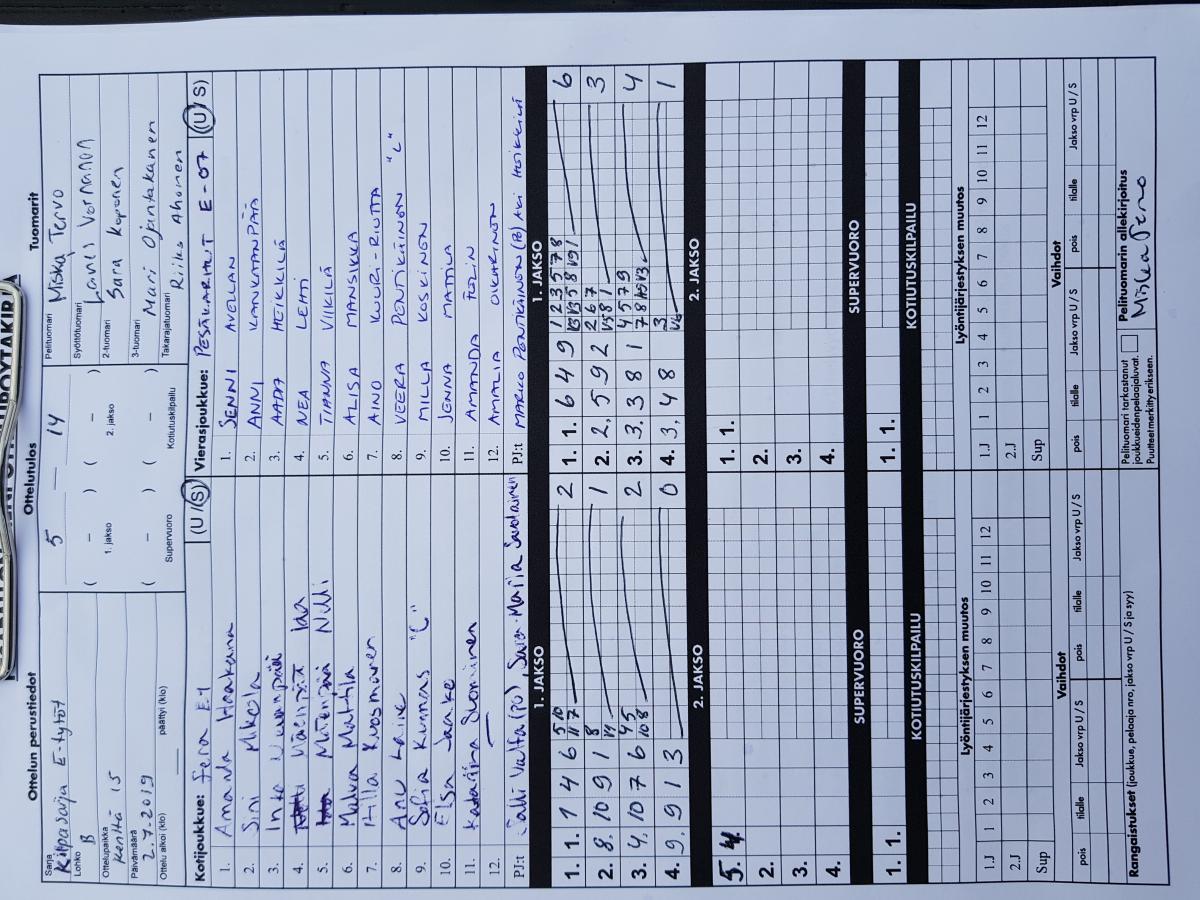 Ottelun perustiedot
Sarja
Kilpasarja E-tytöt
Lohko
B
Ottelupaikka
Kenttä 15
Päivämäärä
2.7.2019
Ottelu alkoi (klo) päättyi (klo)
Ottelutulos
5 — 14
( – ) ( – )
1. jakso 2. jakso
( – ) ( – )
Supervuoro Kotiutuskilpailu
Tuomarit
Pelituomari Miska Tervo
Syöttötuomari
2-tuomari Sara Koponen
3-tuomari Mari Ojantakanen
Takarajatuomari Riika Ahonen
Kotijoukkue: Fera E1 (U / S)
1. Amanda Haakana
2. Sini Mikola
3.
4. Iaa
5. Nelli
6. Matila
7. Hilla Kuosmanen
8. Anu Laine
9. Sofia Kunnas "C"
10. Elsa Jaake
11. Katariina Suominen
12. —
PJ:t Salli Valta (PJ), Saija-Maria Savolainen
Vierasjoukkue: PESÄKARHUT E-07 (U / S)
1. SENNI AVELLAN
2. ANNI KANKAANPÄÄ
3. AADA HEIKKILÄ
4. NEA LEHTI
5. VIIKILÄ
6. ALISA MANSIKKA
7. AINO KUUR-RIUTTA
8. VEERA PENTIKÄINEN "C"
9. MILLA KOSKINEN
10. JENNA MATTILA
11. AMANDA
12. AMALIA OKARINEN
PJ:t MARKO PENTIKÄINEN (PJ) AKI HEIKKILÄ
1. JAKSO
1. 1. 1 4 6 5 10 2
11 7
2. 8, 10 9 1 8 1
3. 4, 10 7 6 4 5 2
10 8
4. 9, 9 1 3 0
1. JAKSO
1. 1. 6 4 9 1 2 3 5 7 8 6
2. 2, 5 9 2 2 6 7 3
3. 3, 3 8 1 4 5 7 9 4
4. 3, 4 8 3 1
2. JAKSO
5. 4.
2.
3.
4.
2. JAKSO
1. 1.
2.
3.
4.
SUPERVUORO
1. 1.
SUPERVUORO
1. 1.
KOTIUTUSKILPAILU
KOTIUTUSKILPAILU
Lyöntijärjestyksen muutos
1.J 1 2 3 4 5 6 7 8 9 10 11 12
2.J
Sup
Lyöntijärjestyksen muutos
1.J 1 2 3 4 5 6 7 8 9 10 11 12
2.J
Sup
Vaihdot
pois tilalle Jakso vrp U / S pois tilalle Jakso vrp U / S
Vaihdot
pois tilalle Jakso vrp U / S pois tilalle Jakso vrp U / S
Rangaistukset (joukkue, pelaaja nro, jakso vrp U / S ja syy)
Pelituomari tarkastanut
joukkueidenpelaajaluvat.
Puutteet merkitty erikseen.
Pelituomarin allekirjoitus
Miska Tervo